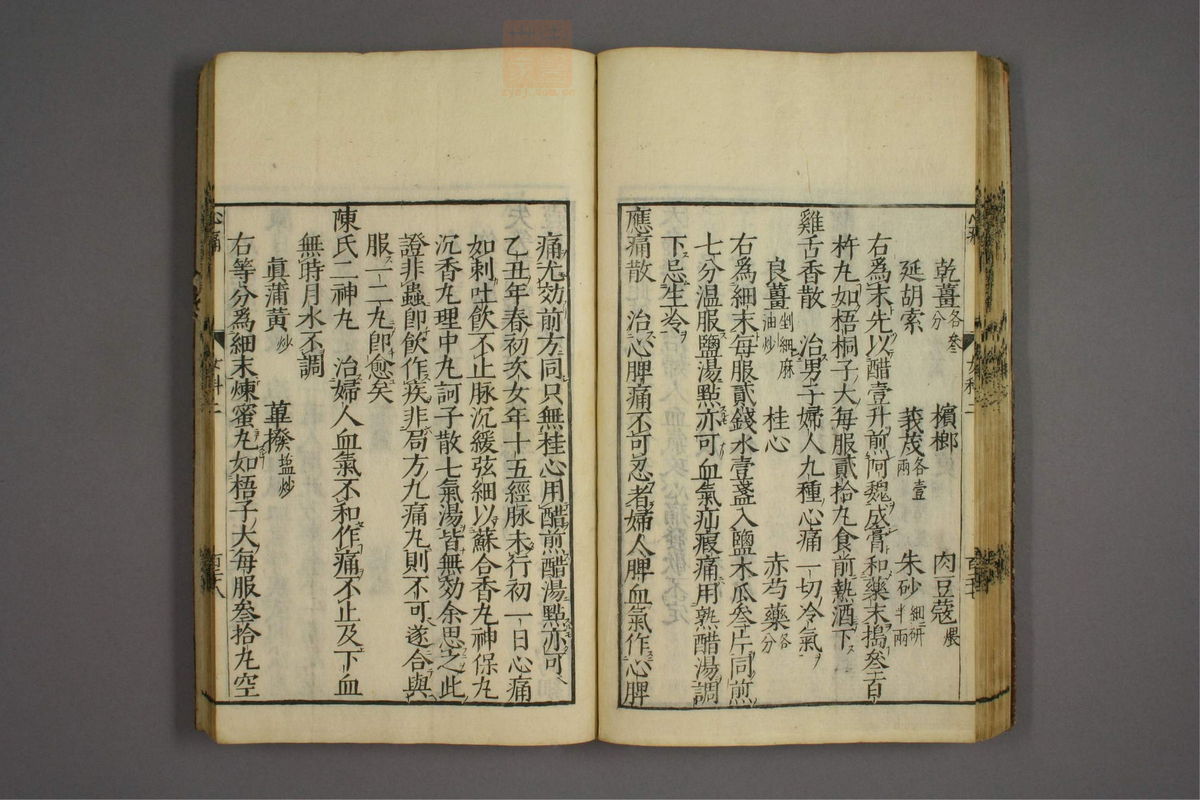 乾薑各叁分 檳榔 肉豆蔻煨
延胡索 莪茂各壹兩 朱砂細研半兩
右爲末先以醋壹升煎阿魏成膏和藥末搗叁百
杵丸如梧桐子大每服貳拾丸食前熱酒下
雞舌香散 治男子婦人九種心痛一切冷氣
良薑剉細麻油炒 桂心 赤芍藥各分
右爲細末每服貳錢水壹盞入鹽木瓜叁片同煎
七分温服鹽湯點亦可血氣疝瘕痛用熟醋湯調
下忌生冷
應痛散 治心脾痛不可忍者婦人脾血氣作心脾
痛尤効前方同只無桂心用醋煎醋湯點亦可
乙丑年春初次女年十五經脉未行初一日心痛
如刺吐飲不止脉沉緩弦細以蘇合香丸神保丸
沉香丸理中丸訶子散七氣湯皆無効余思之此
證非蟲即飲作疾非局方九痛丸則不可遂合與
服一二丸即愈矣
陳氏二神丸 治婦人血氣不和作痛不止及下血
無時月水不調
眞蒲黄炒 蓽撥盐炒
右等分爲細末煉蜜丸如梧子大每服叁拾丸空
心痛
女科二